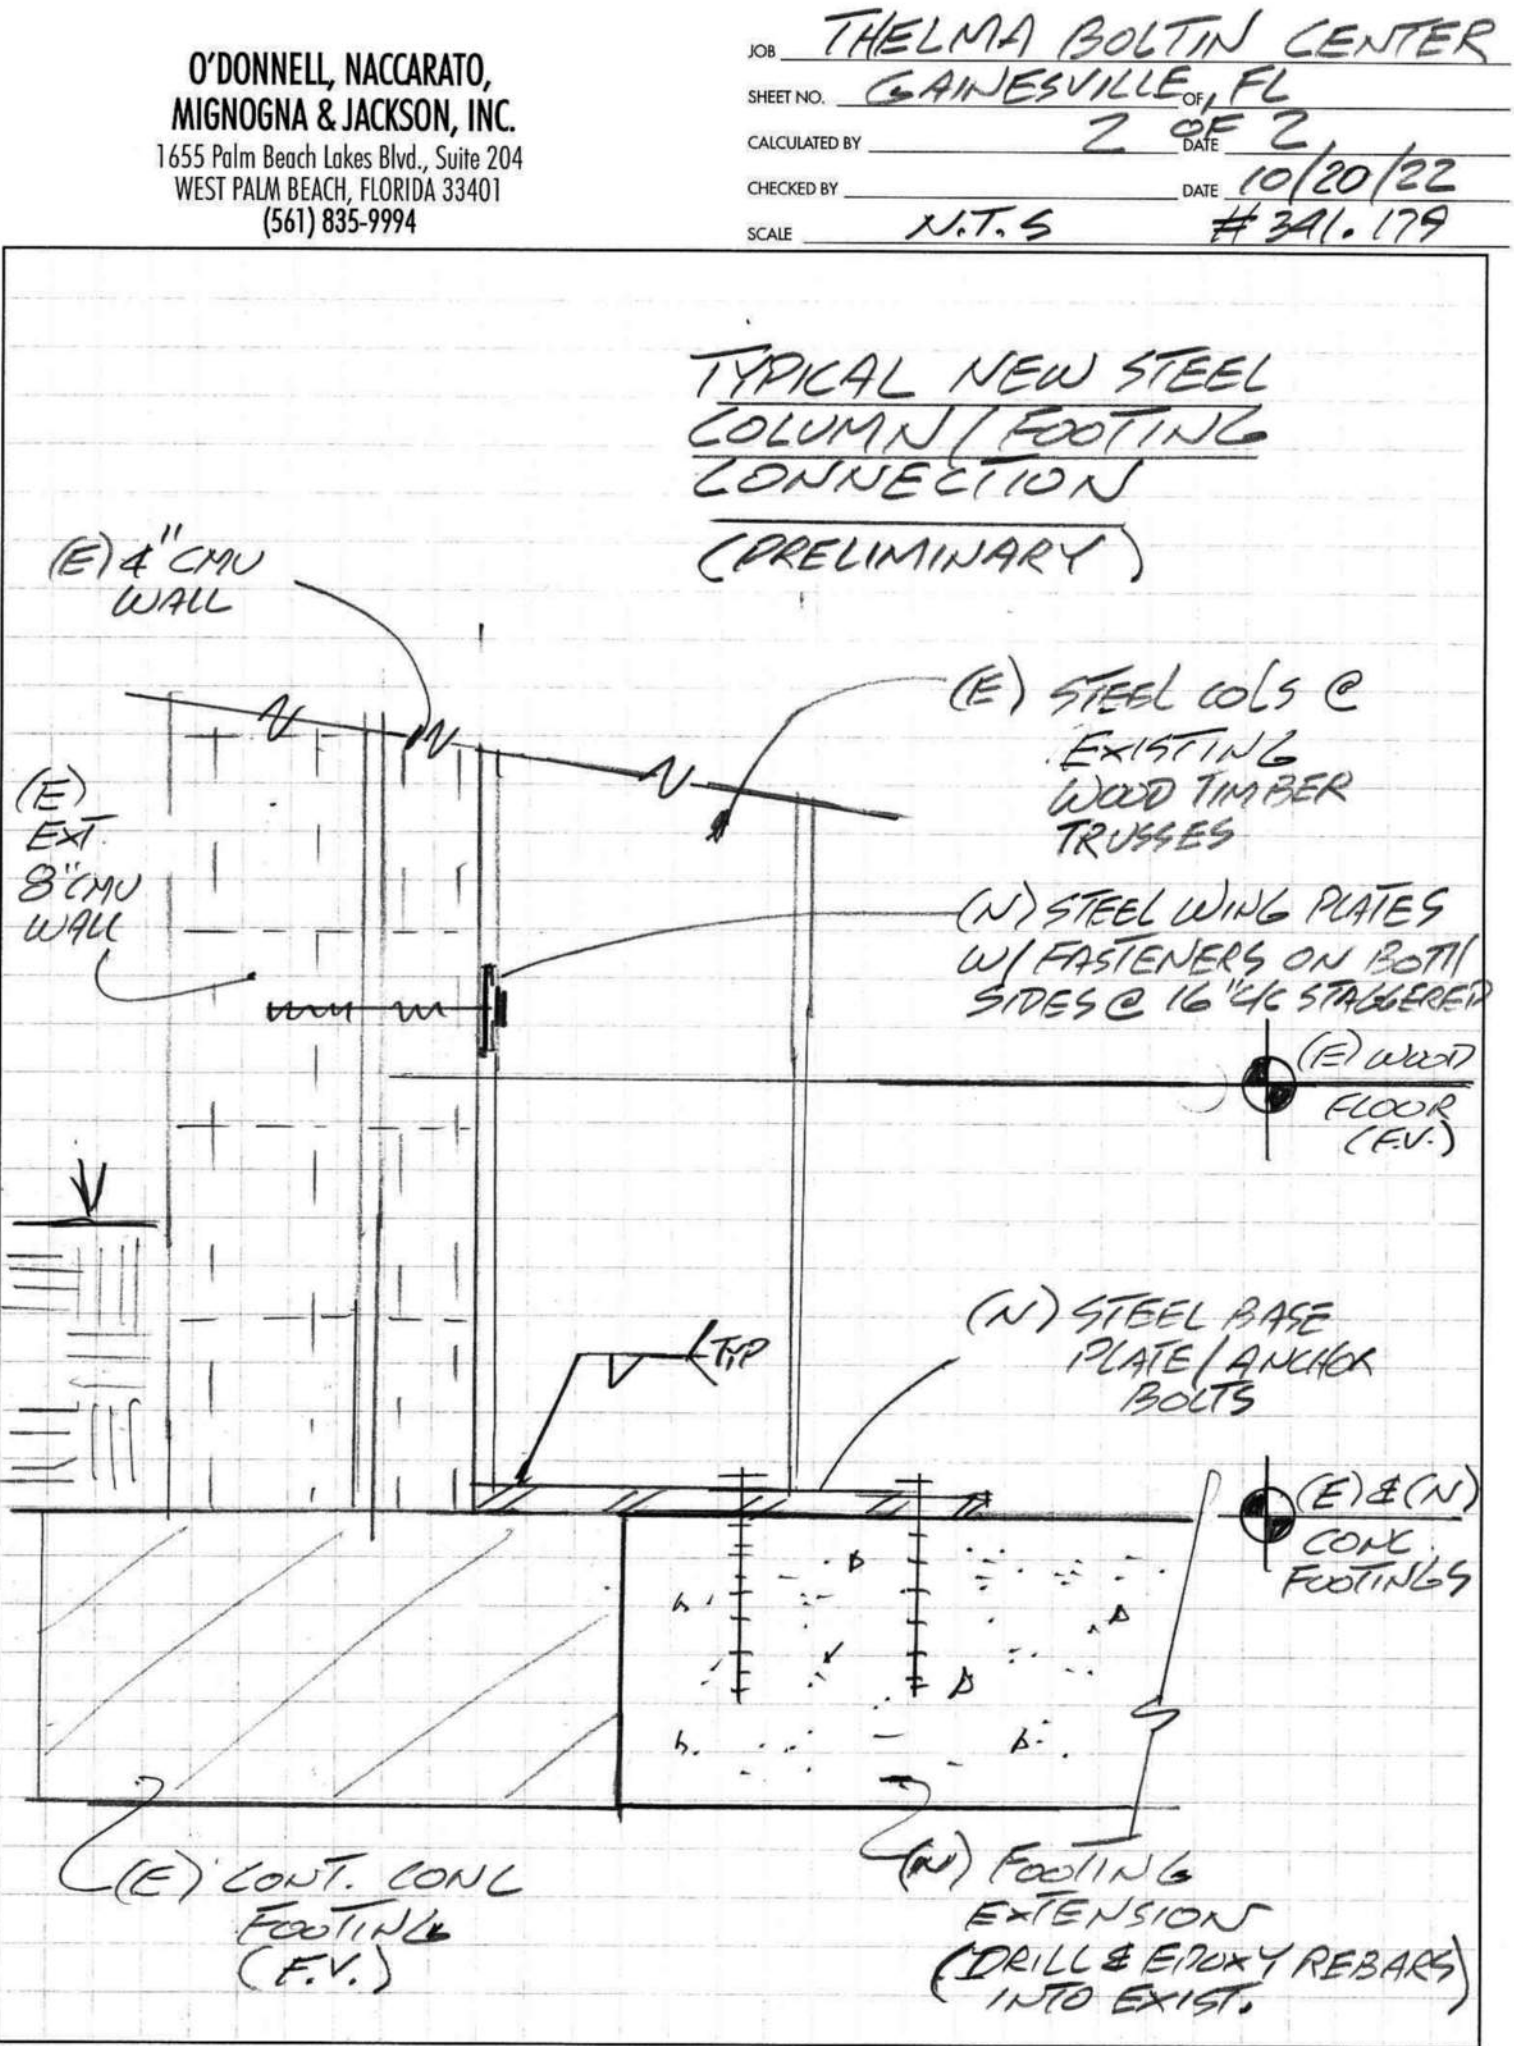 O'DONNELL, NACCARATO,
MIGNOGNA & JACKSON, INC.
1655 Palm Beach Lakes Blvd., Suite 204
WEST PALM BEACH, FLORIDA 33401
(561) 835-9994
JOB THELMA BOLTIN CENTER
SHEET NO. GAINESVILLE, FL OF
CALCULATED BY 2 OF 2 DATE
CHECKED BY DATE 10/20/22
SCALE N.T.S #341.179
TYPICAL NEW STEEL
COLUMN/FOOTING
CONNECTION
(PRELIMINARY)
(E) 4" CMU
WALL
(E) STEEL COLS @
EXISTING
WOOD TIMBER
TRUSSES
(E)
EXT.
8" CMU
WALL
(N) STEEL WING PLATES
W/ FASTENERS ON BOTH
SIDES @ 16" C/C STAGGERED
(E) WOOD
FLOOR
(F.V.)
TYP
(N) STEEL BASE
PLATE/ANCHOR
BOLTS
(E) & (N)
CONC.
FOOTINGS
(E) CONT. CONC
FOOTING
(F.V.)
(N) FOOTING
EXTENSION
(DRILL & EPOXY REBARS)
INTO EXIST.